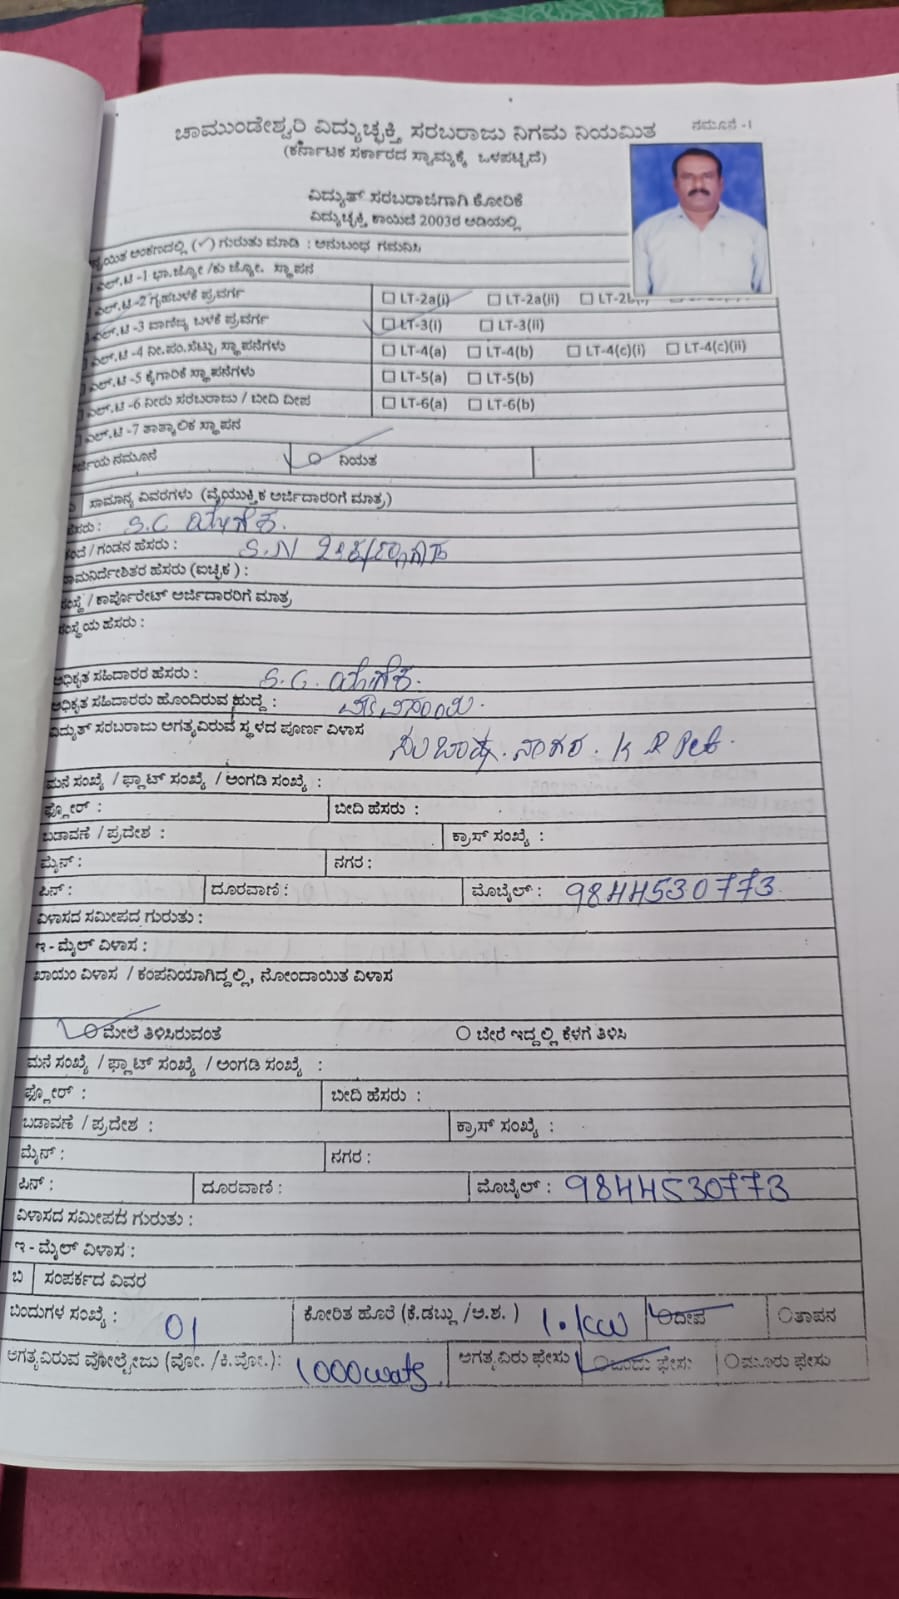 ನಮೂನೆ -1
ಚಾಮುಂಡೇಶ್ವರಿ ವಿದ್ಯುಚ್ಛಕ್ತಿ ಸರಬರಾಜು ನಿಗಮ ನಿಯಮಿತ
(ಕರ್ನಾಟಕ ಸರ್ಕಾರದ ಸ್ವಾಮ್ಯಕ್ಕೆ ಒಳಪಟ್ಟಿದೆ)
ವಿದ್ಯುತ್ ಸರಬರಾಜಿಗಾಗಿ ಕೋರಿಕೆ
ವಿದ್ಯುಚ್ಛಕ್ತಿ ಕಾಯಿದೆ 2003ರ ಅಡಿಯಲ್ಲಿ
ಅಂಕಣದಲ್ಲಿ (✓) ಗುರುತು ಮಾಡಿ : ಅನುಬಂಧ ಗಮನಿಸಿ
ಎಲ್.ಟಿ -1 ಭಾ.ಜ್ಯೋ /ಕು ಜ್ಯೋ. ಸ್ಥಾಪನ
ಎಲ್.ಟಿ -2 ಗೃಹಬಳಕೆ ಪ್ರವರ್ಗ ☐ LT-2a(i) ☐ LT-2a(ii)
ಎಲ್.ಟಿ -3 ವಾಣಿಜ್ಯ ಬಳಕೆ ಪ್ರವರ್ಗ ☐ LT-3(i) ☐ LT-3(ii)
ಎಲ್.ಟಿ -4 ನೀ.ಪಂ.ಸೆಟ್ಟು ಸ್ಥಾಪನೆಗಳು ☐ LT-4(a) ☐ LT-4(b) ☐ LT-4(c)(i) ☐ LT-4(c)(ii)
ಎಲ್.ಟಿ -5 ಕೈಗಾರಿಕೆ ಸ್ಥಾಪನೆಗಳು ☐ LT-5(a) ☐ LT-5(b)
ಎಲ್.ಟಿ -6 ನೀರು ಸರಬರಾಜು / ಬೀದಿ ದೀಪ ☐ LT-6(a) ☐ LT-6(b)
ಎಲ್.ಟಿ -7 ತಾತ್ಕಾಲಿಕ ಸ್ಥಾಪನ
ನಮೂನೆ ನಿಯತ
ಸಾಮಾನ್ಯ ವಿವರಗಳು (ವೈಯುಕ್ತಿಕ ಅರ್ಜಿದಾರರಿಗೆ ಮಾತ್ರ)
ಹೆಸರು : S.C
/ ಗಂಡನ ಹೆಸರು : S.N
ಹೆಸರು (ಐಚ್ಛಿಕ) :
ಸಂಸ್ಥೆ / ಕಾರ್ಪೊರೇಟ್ ಅರ್ಜಿದಾರರಿಗೆ ಮಾತ್ರ
ಸಂಸ್ಥೆಯ ಹೆಸರು :
ಅಧಿಕೃತ ಸಹಿದಾರರ ಹೆಸರು : S.C.
ಅಧಿಕೃತ ಸಹಿದಾರರು ಹೊಂದಿರುವ ಹುದ್ದೆ :
ವಿದ್ಯುತ್ ಸರಬರಾಜು ಅಗತ್ಯವಿರುವ ಸ್ಥಳದ ಪೂರ್ಣ ವಿಳಾಸ
ಸುಬಾಷ್. ನಗರ. K R Pet.
ಮನೆ ಸಂಖ್ಯೆ / ಫ್ಲಾಟ್ ಸಂಖ್ಯೆ / ಅಂಗಡಿ ಸಂಖ್ಯೆ :
ಫ್ಲೋರ್ : ಬೀದಿ ಹೆಸರು :
ಬಡಾವಣೆ / ಪ್ರದೇಶ : ಕ್ರಾಸ್ ಸಂಖ್ಯೆ :
ಮೈನ್ : ನಗರ :
ಪಿನ್ : ದೂರವಾಣಿ : ಮೊಬೈಲ್ : 9844530773
ವಿಳಾಸದ ಸಮೀಪದ ಗುರುತು :
ಇ - ಮೈಲ್ ವಿಳಾಸ :
ಖಾಯಂ ವಿಳಾಸ / ಕಂಪನಿಯಾಗಿದ್ದಲ್ಲಿ, ನೋಂದಾಯಿತ ವಿಳಾಸ
ಮೇಲೆ ತಿಳಿಸಿರುವಂತೆ ಬೇರೆ ಇದ್ದಲ್ಲಿ ಕೆಳಗೆ ತಿಳಿಸಿ
ಮನೆ ಸಂಖ್ಯೆ / ಫ್ಲಾಟ್ ಸಂಖ್ಯೆ / ಅಂಗಡಿ ಸಂಖ್ಯೆ :
ಫ್ಲೋರ್ : ಬೀದಿ ಹೆಸರು :
ಬಡಾವಣೆ / ಪ್ರದೇಶ : ಕ್ರಾಸ್ ಸಂಖ್ಯೆ :
ಮೈನ್ : ನಗರ :
ಪಿನ್ : ದೂರವಾಣಿ : ಮೊಬೈಲ್ : 9844530773
ವಿಳಾಸದ ಸಮೀಪದ ಗುರುತು :
ಇ - ಮೈಲ್ ವಿಳಾಸ :
ಬಿ ಸಂಪರ್ಕದ ವಿವರ
ಬಿಂದುಗಳ ಸಂಖ್ಯೆ : 01 ಕೋರಿತ ಹೊರೆ (ಕೆ.ಡಬ್ಲು /ಅ.ಶ. ) 1.kw ದೀಪ ತಾಪನ
ಅಗತ್ಯವಿರುವ ವೋಲ್ಟೇಜು (ವೋ. /ಕಿ.ವೋ.): 1000wats ಅಗತ್ಯವಿರು ಫೇಸು ಒಂದು ಫೇಸು ಮೂರು ಫೇಸು